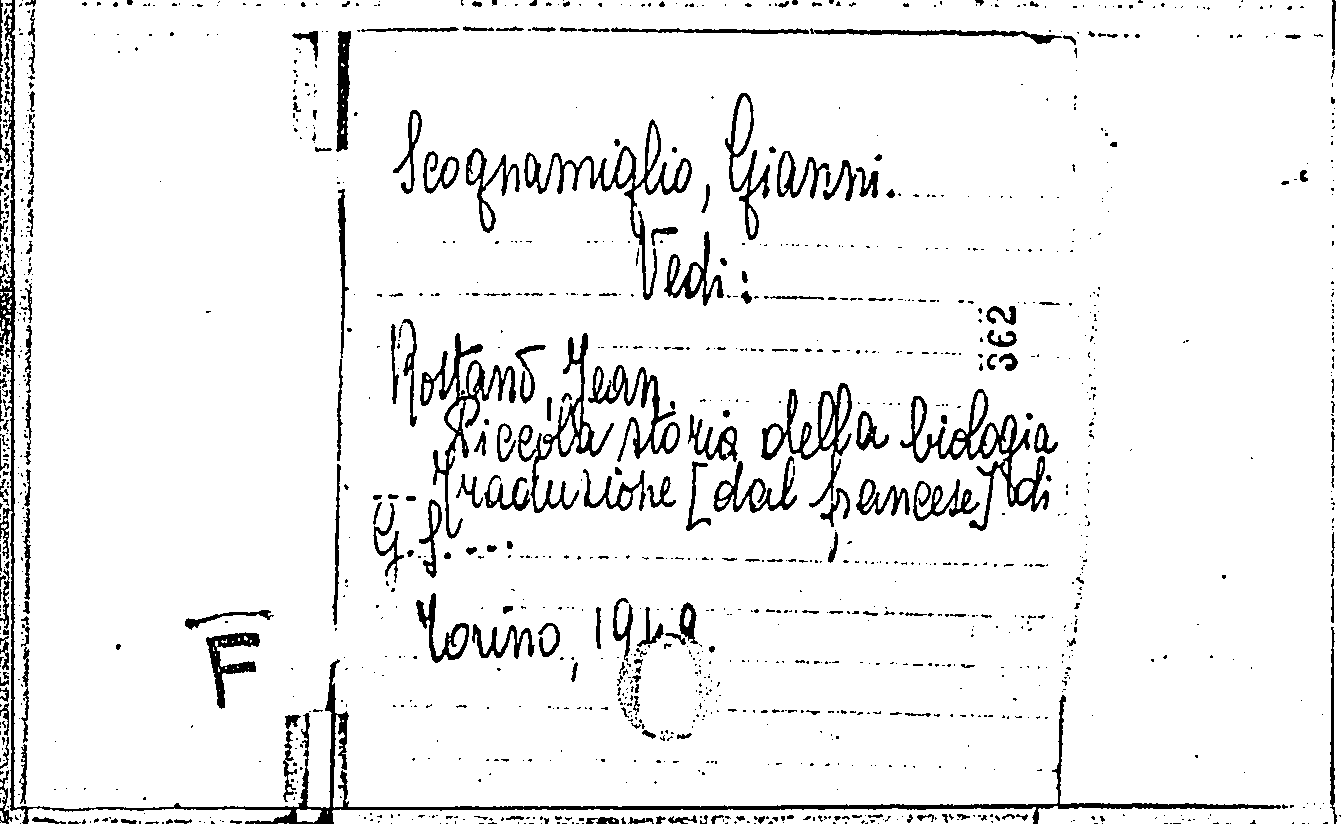 Scognamiglio, Gianni.
Vedi:
362
Rostand, Jean.
Piccola storia della biologia
Traduzione [dal francese] di
G. S. ...
Torino, 1949.
F